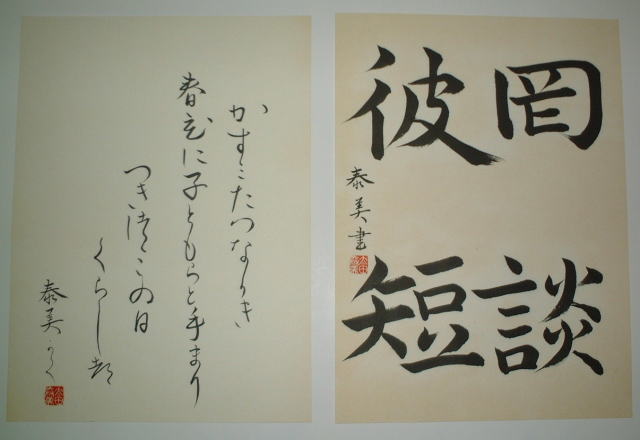 罔談
彼短
泰美書
かすミたつなかき
春ひに子ともらと手まり
つきつゝこの日
くらし都
泰美かく